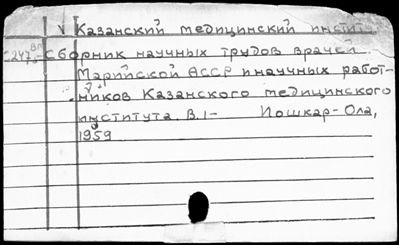 V Казанский медицинский инстит.
С247 вп Сборник научных трудов врачей
Марийской АССР и научных работ-
ников Казанского медицинского
института. В. 1- Йошкар-Ола,
1959